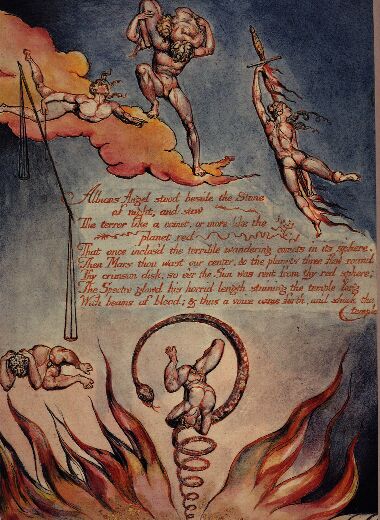 Albions Angel stood beside the Stone
of night, and saw
The terror like a comet, or more like the
planet red
That once inclos'd the terrible wandering comets in its sphere.
Then Mars thou wast our center, & the planets three flew round
Thy crimson disk; so eer the Sun was rent from thy red sphere;
The Spectre glowd his horrid length staining the temple long
With beams of blood; & thus a voice came forth, and shook the
temple